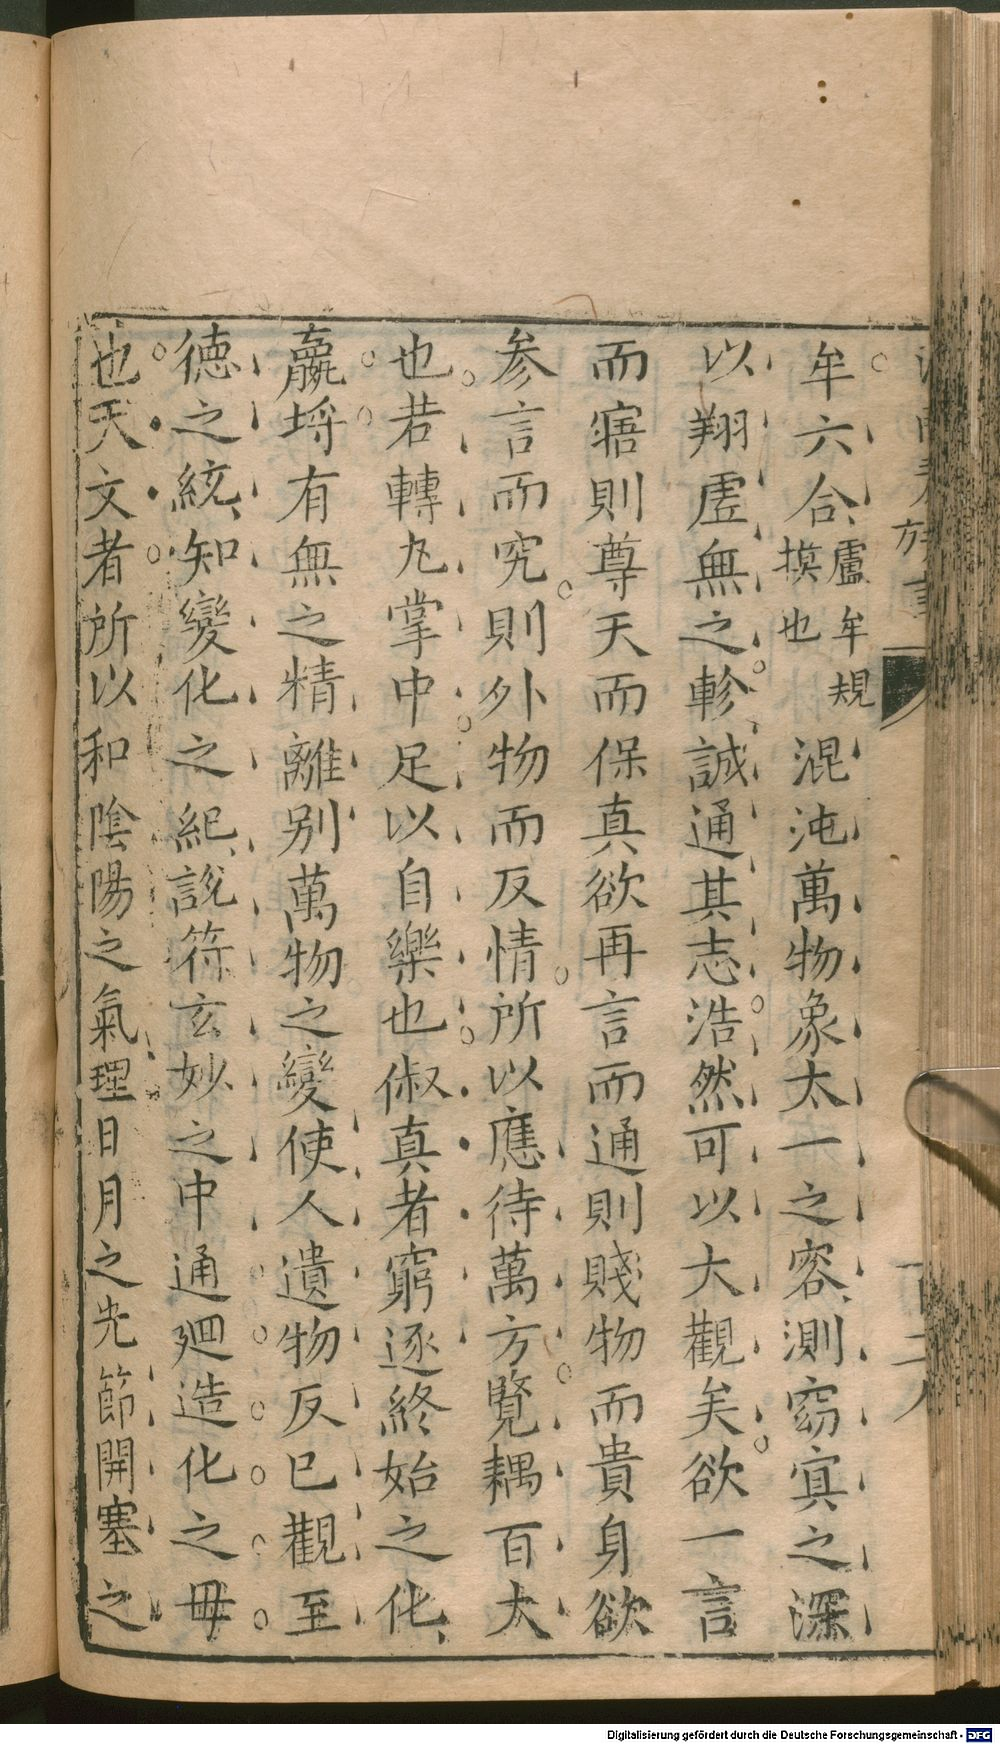 牟六合盧牟規摸也混沌萬物象太一之容測窈寘之深
以翔虚無之軫誠通其志浩然可以大觀矣欲一言
而寤則尊天而保真欲再言而通則賤物而貴身欲
参言而究則外物而反情所以應待萬方覽耦百太
也若轉丸掌中足以自樂也俶真者窮逐終始之化
嬴埓有無之精離别萬物之變使人遺物反已觀至
徳之統知變化之紀說符玄妙之中通廻造化之毋
也天文者所以和陰陽之氣理日月之光節開塞之
Digitalisierung gefördert durch die Deutsche Forschungsgemeinschaft - DFG